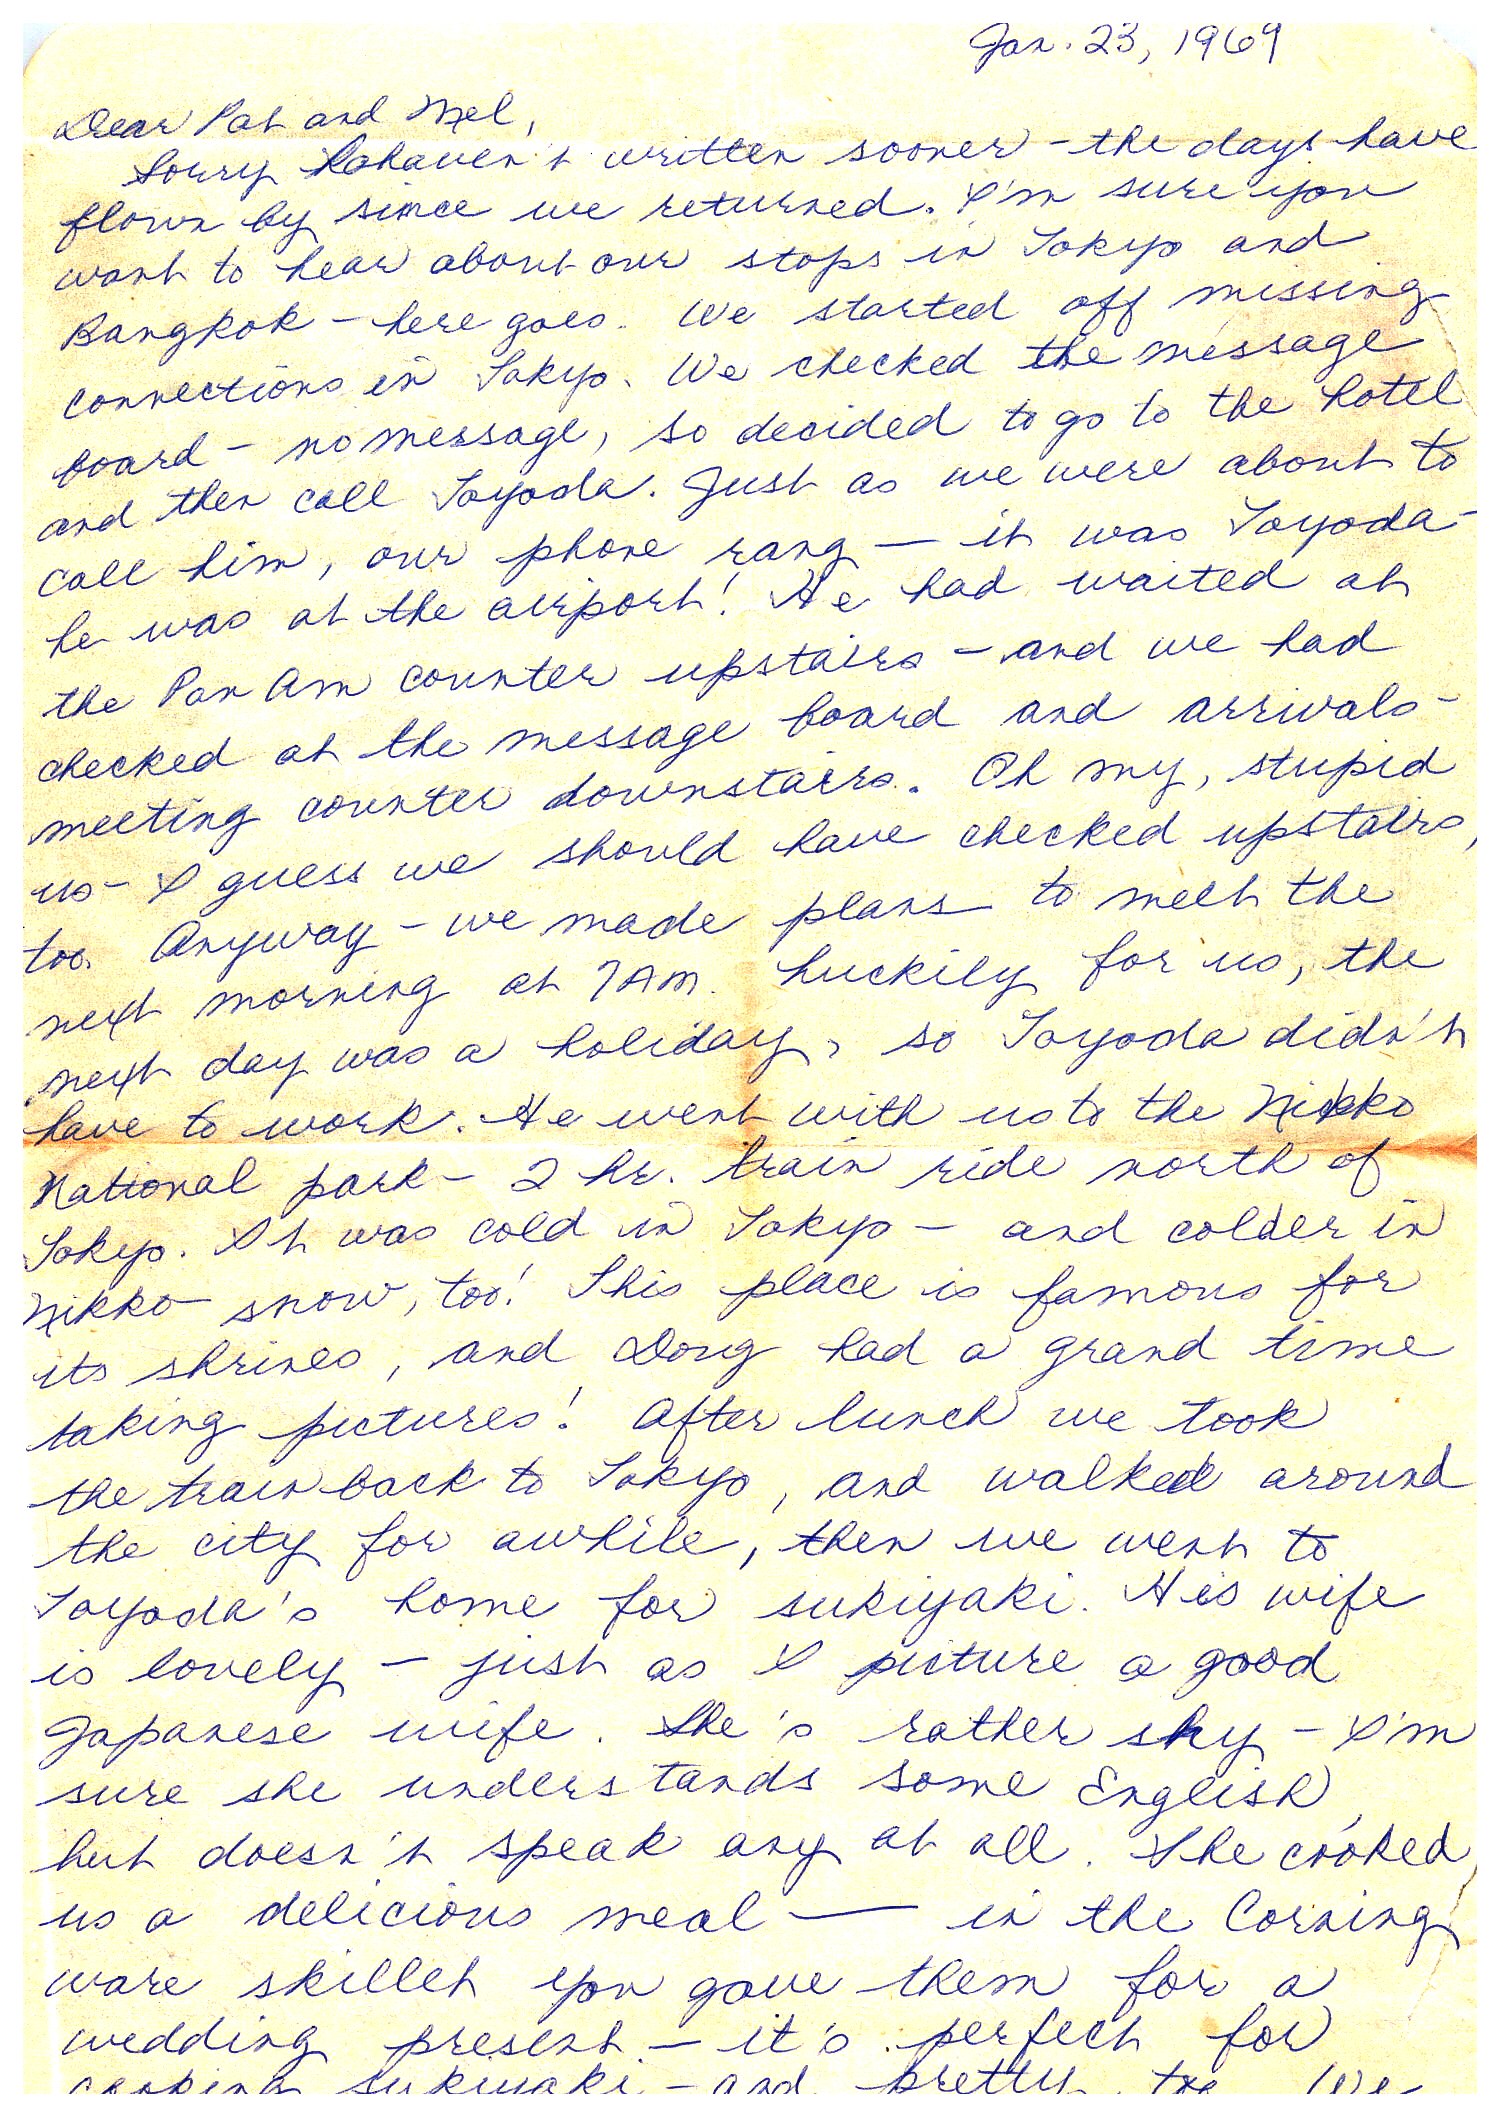 Jan. 23, 1969
Dear Pat and Mel,
Sorry I haven't written sooner - the days have
flown by since we returned. I'm sure you
want to hear about our stops in Tokyo and
Bangkok - here goes. We started off missing
connections in Tokyo. We checked the message
board - no message, so decided to go to the hotel
and then call Toyoda. Just as we were about to
call him, our phone rang — it was Toyoda -
he was at the airport! He had waited at
the Pan Am counter upstairs - and we had
checked at the message board and arrivals -
meeting counter downstairs. Oh my, stupid
us - I guess we should have checked upstairs,
too. Anyway - we made plans to meet the
next morning at 7 AM. Luckily for us, the
next day was a holiday, so Toyoda didn't
have to work. He went with us to the Nikko
National park - 2 hr. train ride north of
Tokyo. It was cold in Tokyo - and colder in
Nikko - snow, too! This place is famous for
its shrines, and Doug had a grand time
taking pictures! After lunch we took
the train back to Tokyo, and walked around
the city for awhile, then we went to
Toyoda's home for sukiyaki. His wife
is lovely - just as I picture a good
Japanese wife. She's rather shy - I'm
sure she understands some English,
but doesn't speak any at all. She cooked
us a delicious meal — in the Corning
ware skillet you gave them for a
wedding present - it's perfect for
cooking sukiyaki - and pretty, too. We